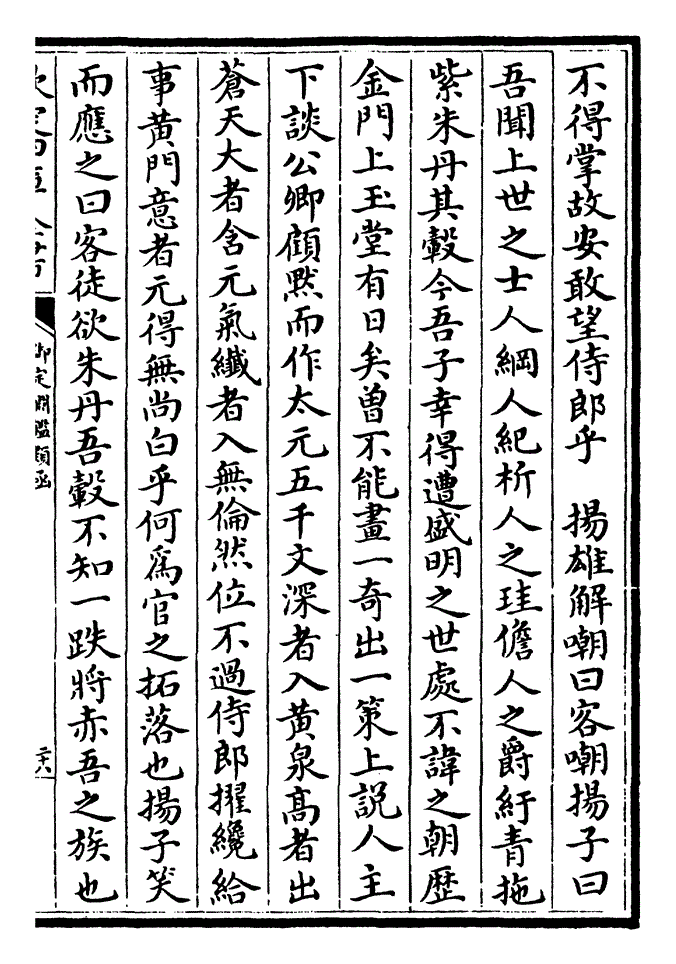 不得掌故安敢望侍郎乎　揚雄解嘲曰客嘲揚子曰
吾聞上世之士人綱人紀析人之珪儋人之爵紆青拖
紫朱丹其轂今吾子幸得遭盛明之世處不諱之朝歴
金門上玉堂有日矣曽不能畫一奇出一策上説人主
下談公卿顧黙而作太元五千文深者入黄泉髙者出
蒼天大者含元氣纎者入無倫然位不過侍郎擢纔給
事黄門意者元得無尚白乎何爲官之拓落也揚子笑
而應之曰客徒欲朱丹吾轂不知一跌將赤吾之族也
御定淵鑑類函
二十八